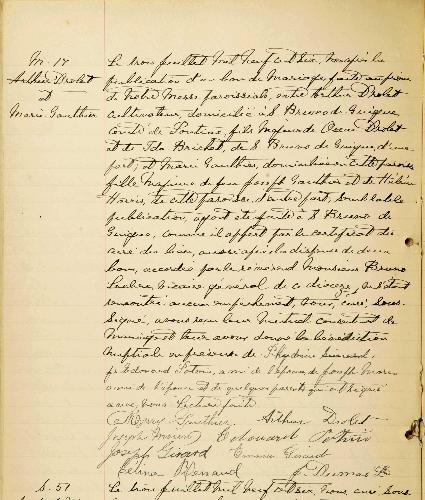 M. 17
Arthur Drolet
et
Marie Gauthier
Le trois juillet mil neuf cent six, vu après la
publication d'un ban de Mariage faite au prône
de notre Messe paroissiale, entre Arthur Drolet
cultivateur, domicilié à S. Bruno de Guigues,
Comté de Pontiac, fils Majeur de Drolet
et de Ida de S. Bruno de Guigues, d'une
part; et Marie Gauthier, domiciliée en cette paroisse
fille Majeure de feu Joseph Gauthier et de
Harris, de cette paroisse, d'autre part, semblable
publication, ayant été faite à S. Bruno de
Guigues, comme il appert par le certificat du
curé du lieu, aussi après la dispense de deux
bans, accordée par le révérend Monsieur Bruno
vicaire général de ce diocèse, ne s'étant
rencontré aucun empêchement, nous, curé, sous-
signé, avons reçu leur mutuel consentement de
Mariage et leur avons donné la bénédiction
nuptiale en présence de
Edouard Potvin, ami de l'époux, de Joseph Morin
ami de l'épouse et de quelques parents qui ont signé
avec nous. Lecture faite
Gauthier Arthur Drolet
Joseph Morin Edouard Potvin
Joseph Girard Girard
S. 57
Le trois juillet mil neuf cent six, nous curé sous-